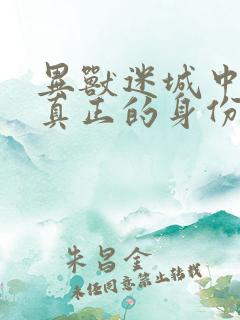 異獸迷城中
真正的身份
朱昌金
未经同意禁止转载